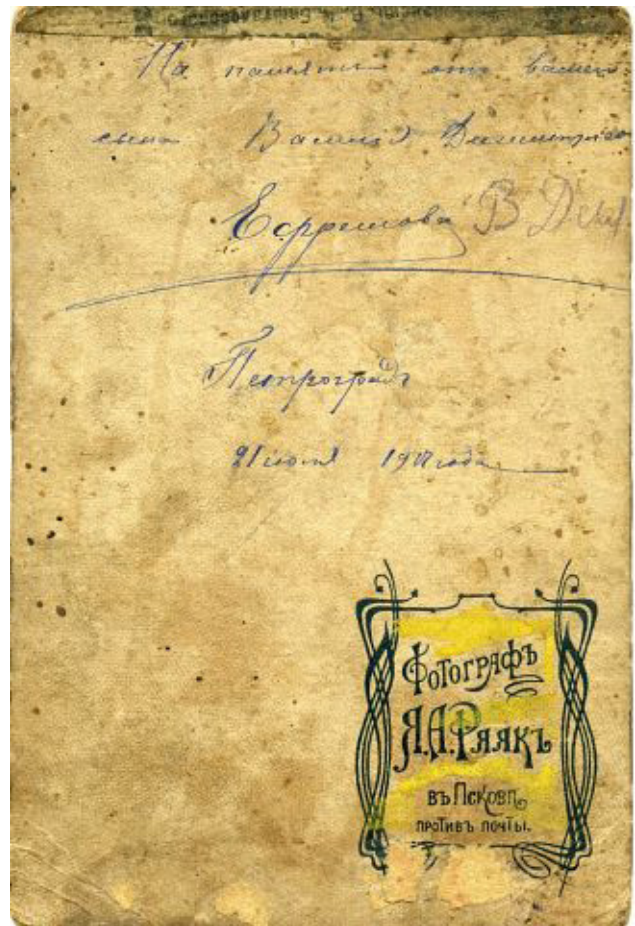 На память отъ вашего
сына Василія Димитріев
Ефремова В
Петроградъ
21 іюля 19 года
Фотографъ
Я.А.Ряякъ
въ Псковѣ
противъ почты.